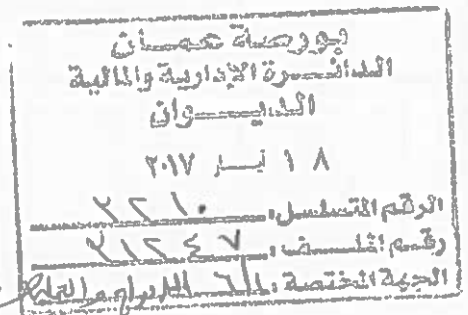 بورصة عمان
الدائرة الإدارية والمالية
الديوان
١٨ أيار ٢٠١٧
الرقم المتسلسل: ٢٢١٠
رقم الملف: ٢١٢٤٧
الجهة المختصة: